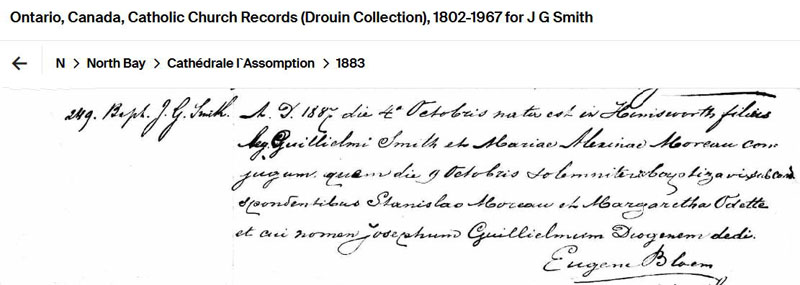 Ontario, Canada, Catholic Church Records (Drouin Collection), 1802-1967 for J G Smith
← N > North Bay > Cathédrale l`Assomption > 1883
249. Bapt. J. G. Smith. A. D. 1887 die 4a Octobris natus est in Himsworth filius
leg. Guillielmi Smith et Mariae Alexinae Moreau con
jugum. quem die 9 Octobris solemniter baptizavi sub cond.
spondentibus Stanislao Moreau et Margaretha Odette
et cui nomen Josephum Guillielmum Diogenem dedi.
Eugene Bloem